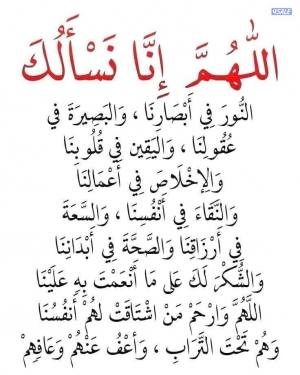 4SALE
اللّٰهُمَّ إِنَّا نَسْأَلُكَ
النُّورَ فِي أَبْصَارِنَا ، وَالبَصِيرَةَ فِي
عُقُولِنَا ، وَاليَقِينَ فِي قُلُوبِنَا
وَالإِخْلَاصَ فِي أَعْمَالِنَا
وَالنَّقَاءَ فِي أَنْفُسِنَا ، وَالسَّعَةَ
فِي أَرْزَاقِنَا وَالصِّحَّةَ فِي أَبْدَانِنَا
وَالشُّكْرَ لَكَ عَلَى مَا أَنْعَمْتَ بِهِ عَلَيْنَا
اللَّهُمَّ وَارْحَمْ مَنِ اشْتَاقَتْ لَهُمْ أَنْفُسُنَا
وَهُمْ تَحْتَ التُّرَابِ ، وَأَعْفُ عَنْهُمْ وَعَافِهِمْ